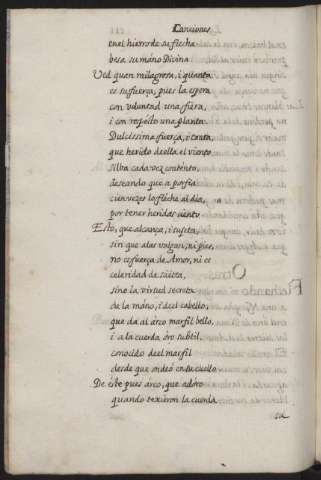 Canciones
en el hierro de su flecha
besa su máno Divina
Ved quan milagrosa, i quanta
es su fuerça, pues la espera
con voluntad una fiera,
i con respéto una planta.
Dulcissima fuerça, i tanta
que herido de ella el viento
silba cada vez contento,
deseando que a porfia
cien vezes lo fleche al dia,
por tener heridas ciento
Esto, que alcança, i sugeta,
sin que alas valgan, ni pies,
no es fuerça de Amor, ni es
celeridad de saéta,
sino la virtud secreta
de la máno, i del cabello,
que dá al árco marfil bello,
i a la cuerda óro subtil,
conocido de el marfil
desde que ondeó en su cuello
De éste pues árco, que adoro
quando texieron la cuerda